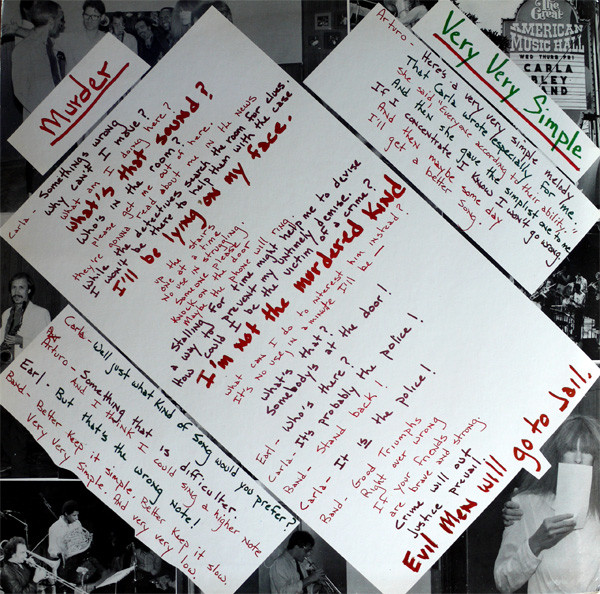 Murder
Carla - Somethings wrong
why can't I move?
What am I doing here?
What's that sound?
Who's in the room?
please get me out of here.
they're gonna read about me in the news
While the detectives search the room for clues.
I won't be there to help them with the case
I'll be lying on my face.
If he
at a time
No use in struggling
Someone please
Knock on the door
Maybe the phone will ring
Stalling for time might help me to device
a way to prevent my untimely demise.
How could I be the victim of a crime?
I'm not the murdered kind
What can I do to interest him instead?
It's no use, in a minute I'll be —
What's that?
Somebody's at the door!
Earl - Who's there?
Carla - It's probably the police!
Band - Stand back!
Carla - It is the police!
Band - Good Triumphs
Right over wrong
If your friends
are brave and strong.
Crime will out
Justice prevail!
Evil Men will go to Jail.
Very Very Simple
Arturo - Here's a very very simple melody
That Carla wrote especially for me
She said, "Everyone according to their ability"
And then she gave the simplist one to me
If I concentrate I know I won't go wrong
And then maybe some day
I'll get a better song
Carla - Well just what kind of song would you prefer?
Arturo - Something that is difficulter
And I think I could sing a higher note
Earl - But that's the wrong note!
Band - Better keep it simple. Better keep it slow.
Very very simple. And very very low.
The Great
AMERICAN
MUSIC HALL
CARLA
BLEY
BAND